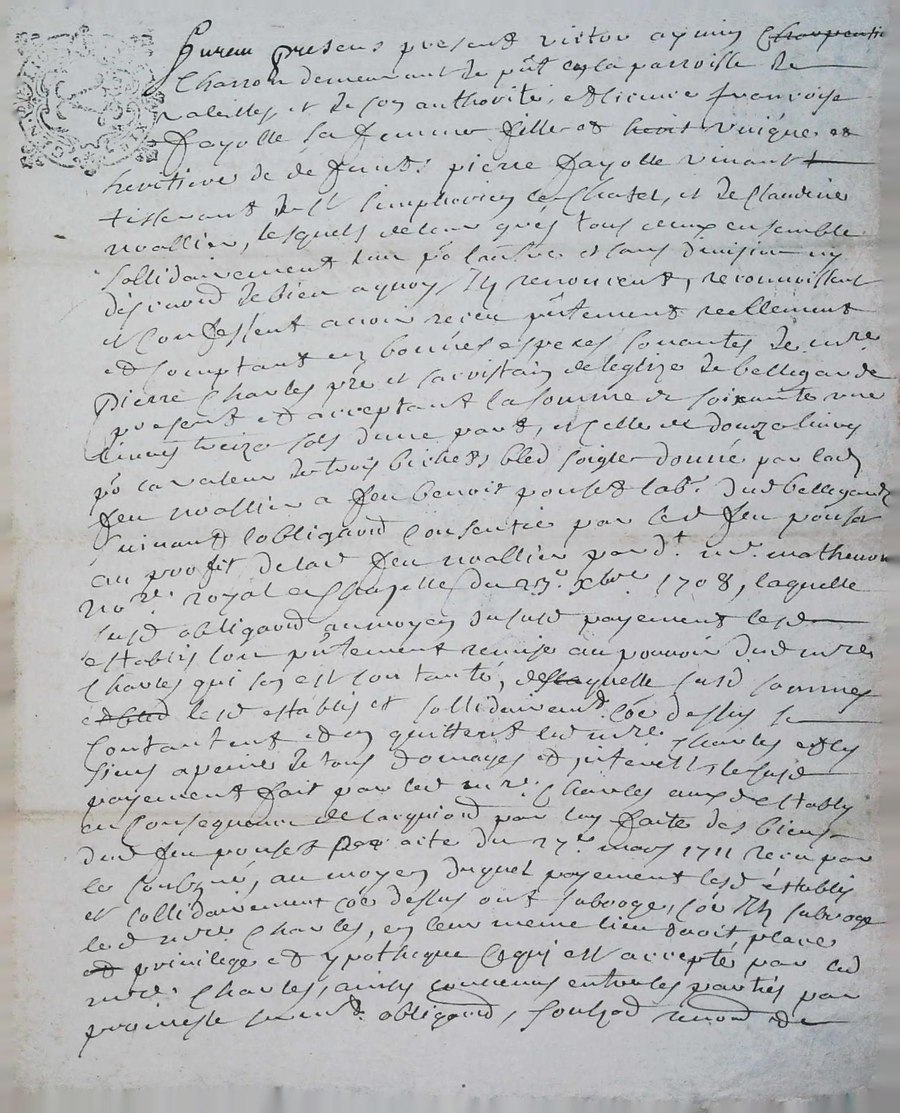 Furent presens present victor aymin Charpentie
Charron demeurant de pñt en la parroisse de
valeilles, et de son authorité, et licence francoise
fayolle sa femme fille et herit unique et
heritiere de defunts pierre fayolle vivant
tisserant de St Simphorien le Chatel, et de Claudine
noallier, lesquels de leur gres tous deux ensemble
sollidairement l'un po l'autre et sans division ny
discution de bien a quoy Ils renoncent, reconnoissent
et Confessent avoir receu pñtement reellement
et Comptant en bonnes especes sonantes de mre
pierre Charles pre et sacristain de leglize de bellegarde
present et acceptant la somme de soixante une
livres treize sols d'une part, et celle de douze livres
po la valeur de trois bichets bled soigle donné par lad
feu noallier a feu benoit pouset labr dud bellegarde
suivant l'obligaõn Consentie par led feu pouset
au proffit de lad feu noallier par dt mr mathevon
nore royal a Chazelle du 23e xbre 1708, laquelle
susd obligaõn au moyen du susd payement lesd
establis l'on pñtement remise au pouvoir dud mre
Charles qui s'en est contanté, de laquelle susd sommes
et bled lesd establis et sollidairemt Coe dessus se
Contantent et en quittent led mre Charles et les
siens a peine de tous domages et interests, le susd
payement fait par led mre Charles auxd establys
en Consequence de lacquiõn par luy faite des biens
dud feu pouset par acte du 27e mars 1711 receu par
le soubzné, au moyen duquel payement lesd establis
et sollidairement Coe dessus ont subroge, Coe Ils subroge
led mre Charles, en leur meme lieu droit, place
et privilege et ypotheque Ce qui est accepté par led
mre Charles, ainsy convenus entre les parties par
promesse sermt obligaõn, soubzõn renonõn et